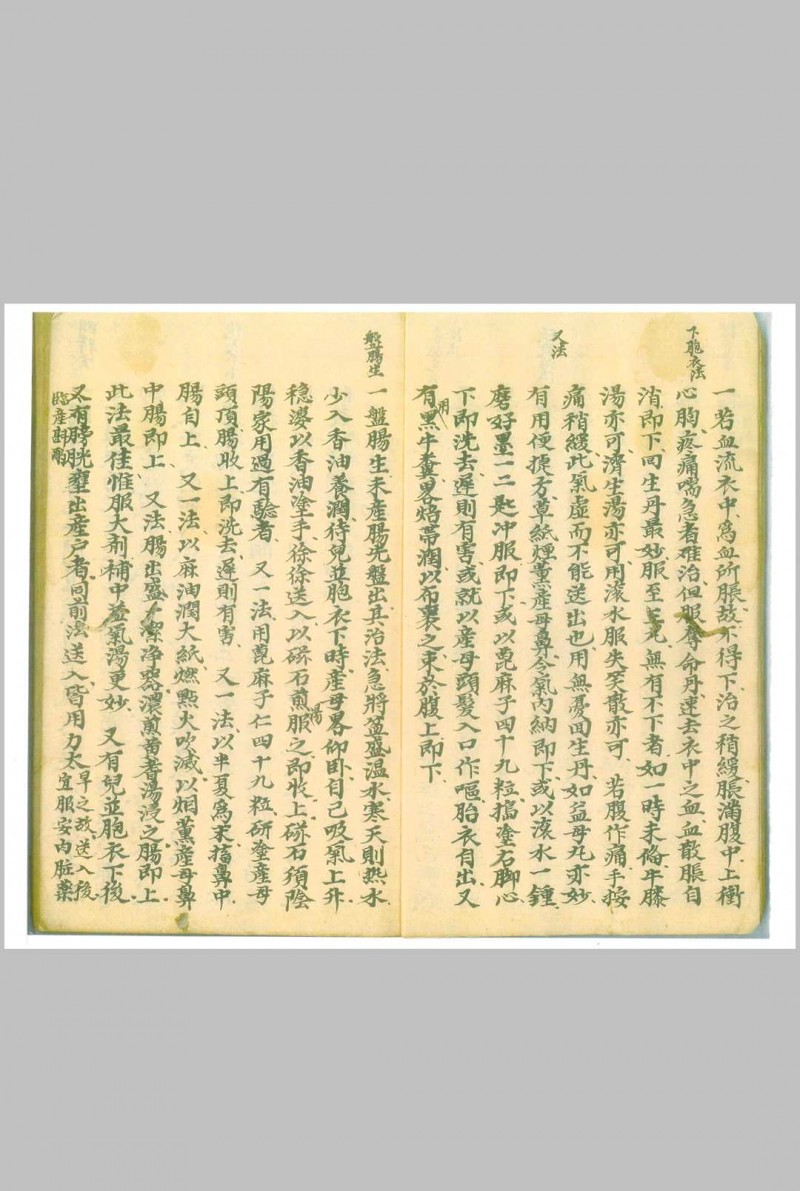 下胞衣法
一若血流衣中爲血所脹故不得下治之稍緩脹滿腹中上衝
心胸疼痛喘急者难治但服奪命丹速去衣中之血血散脹自
消即下回生丹最妙服至三丸無有不下者如一時未俻牛膝
湯亦可濟生湯亦可用滚水服失笑散亦可 若腹作痛手按
又法
痛稍緩此氣虚而不能送出也用無憂回生丹如益母丸亦妙
有用便捷方草紙煙薰産母鼻令氣內納即下或以滚水一鍾
磨好墨一二匙冲服即下或以蓖麻子四十九粒搗塗右脚心
下即洗去遲則有害或就以産母頭髮入口作嘔胎衣自出又
有用黑牛糞畧焙带潤以布裹之束於腹上即下
盤腸生
一盤腸生未産腸先盤出其治法急將盆盛温水寒天則热水
少入香油養潤待兒並胞衣下時産母畧仰卧自己吸氣上升
稳婆以香油塗手徐徐送入以磁石煎湯服之即收上磁石須陰
陽家用過有騐者 又一法用蓖麻子仁四十九粒研塗産母
頭頂腸收上即洗去遲則有害 又一法以半夏爲末搐鼻中
腸自上 又一法以麻油潤大紙燃點火吹滅以烟薰産母鼻
中腸即上 又法腸出盛潔净器濃煎黄耆湯浸之腸即上
此法最佳惟服大剤補中益氣湯更妙 又有兒並胞衣下後
又有膀胱壅出産户者同前法送入皆用力太早之故送入後
宜服安內臟藥
臨産斟酌